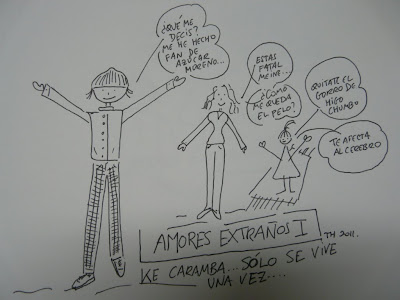 ¿QUÉ ME
DECIS?
ME HE HECHO
FAN DE
AZÚCAR
MORENO...
ESTAS
FATAL
MEINE...
¿CÓMO
ME QUEDA
EL PELO?
QUITATE EL
GORRO DE
HIGO
CHUMBO
TE AFECTA
AL CEREBRO
AMORES EXTRAÑOS I
TH 2011.
KE CARAMBA... SÓLO SE VIVE
UNA VEZ....